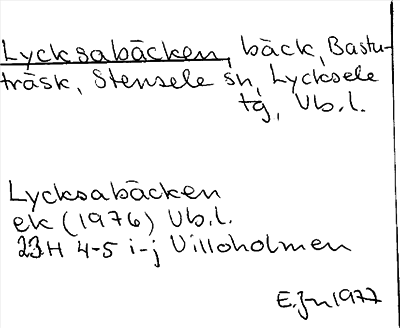 Lycksabäcken, bäck, Bastu-
träsk, Stensele sn, Lycksele
tg, Vb.l.
Lycksabäcken
ek (1976) Vb.l.
23H 4-5 i-j Villoholmen
1977